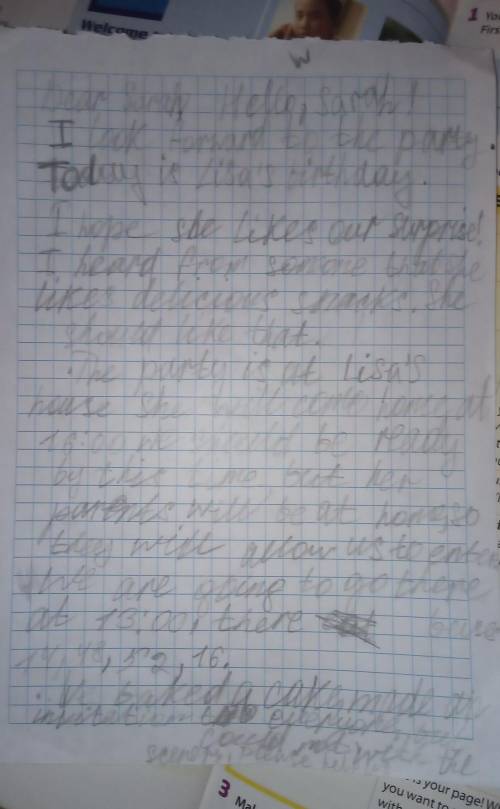 Welcome
1 You
First
Dear Sarah, Hello, Sarah!
I look forward to the party.
Today is Lisa's birthday.
I hope she likes our surprise!
I heard from someone that she
likes delicious snacks. She
should like that.
The party is at Lisa's
house she will come home at
16:00 we should be ready
by this time, but her
parents will be at home, so
they will allow us to enter
We are going to go there
at 15:00, there
14, 48, 52, 16.
We baked a cake, made
could not write the
3
is your page!
you want to
with